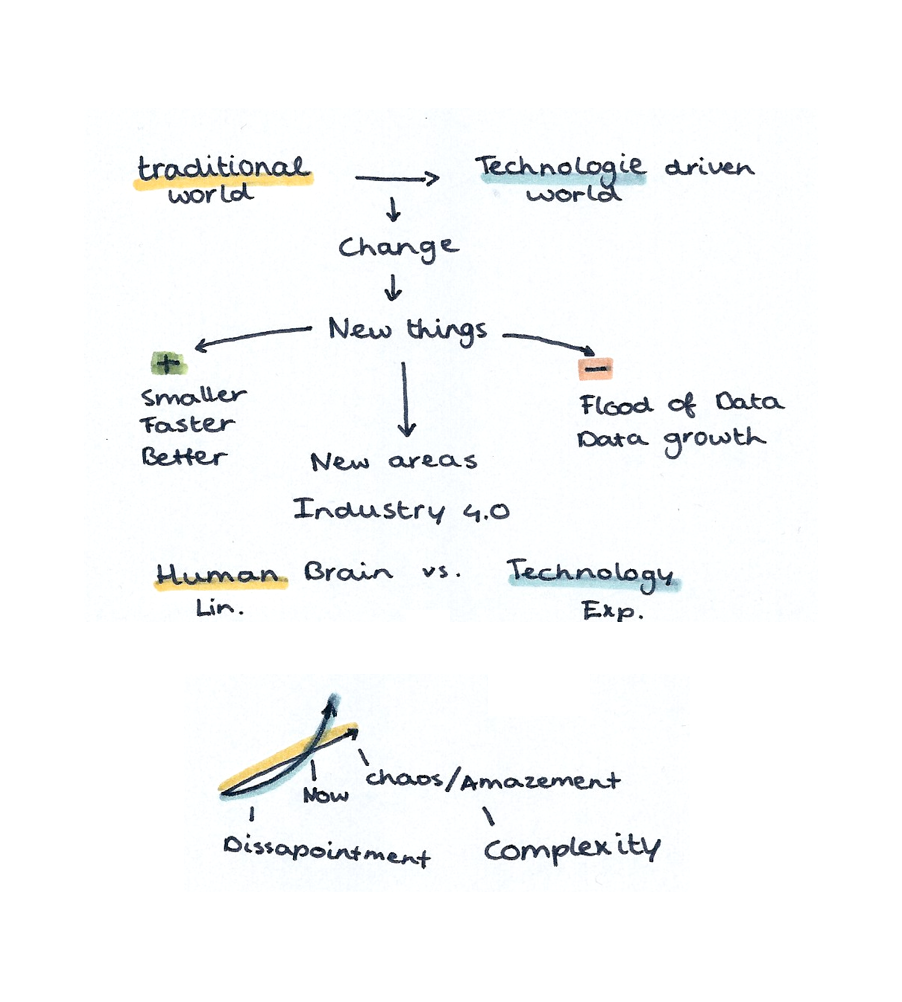 traditional
world
Technologie driven
world
Change
New things
+
Smaller
Faster
Better
-
Flood of Data
Data growth
New areas
Industry 4.0
Human Brain vs. Technology
Lin.
Exp.
Now
chaos/Amazement
Dissapointment
Complexity